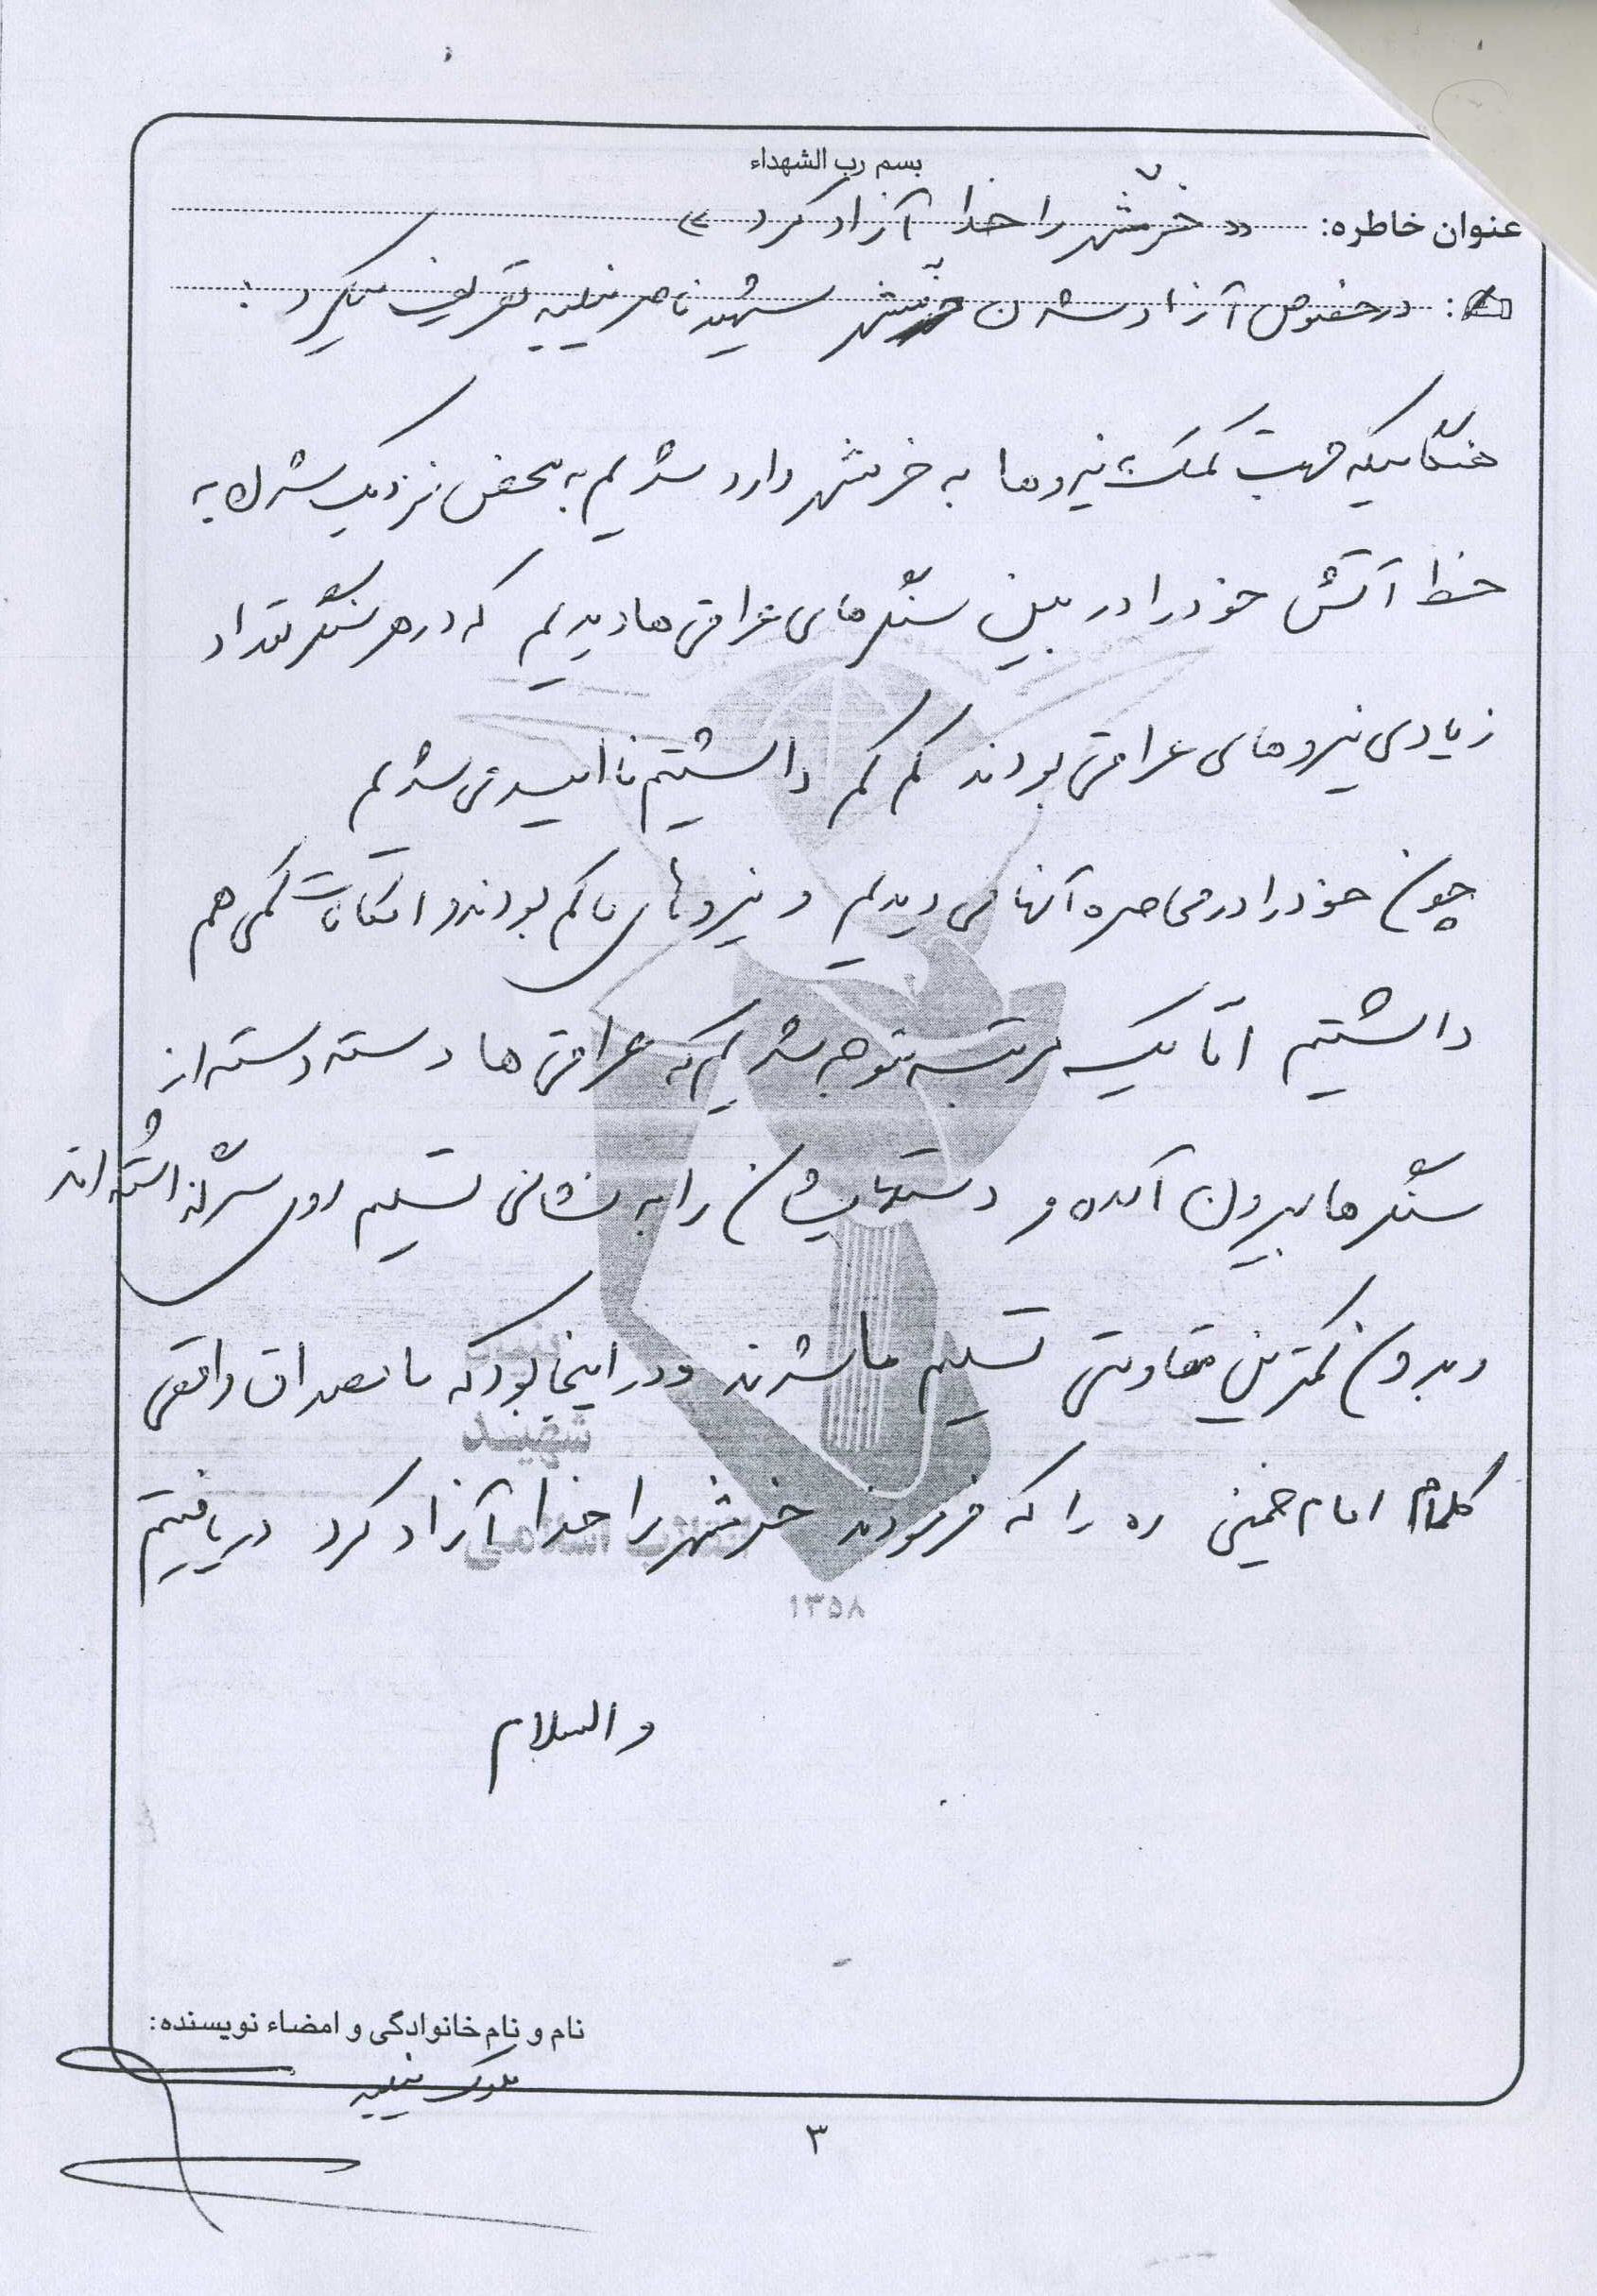 بسم رب الشهداء
عنوان خاطره: « خرمشهر را خدا آزاد کرد »
: در خصوص آزاد شدن خرمشهر شهید ناصر تعریف میکرد :
هنگامیکه جهت کمک نیروها به خرمشهر وارد شدیم به محض نزدیک شدن به
خط آتش خود را در بین سنگرهای عراقی ها دیدیم که در هر سنگر تعداد
زیادی نیروهای عراقی بودند کم کم داشتیم ناامید می شدیم
چون خود را در محاصره آنها می دیدیم و نیروهای ما کم بودند و امکانات کمی هم
داشتیم امّا یک مرتبه متوجه شدیم که عراقی ها دسته دسته از
سنگرها بیرون آمده و دستهایشان را به نشانی تسلیم روی سر گذاشته اند
و بدون کمترین مقاومتی تسلیم ما شدند و در اینجا بود که ما مصداق واقعی
کلام امام خمینی ره را که فرمودند خرمشهر را خدا آزاد کرد دریافتیم
والسلام
بنیاد
شهید
انقلاب اسلامی
۱۳۵۸
نام و نام خانوادگی و امضاء نویسنده:
۳